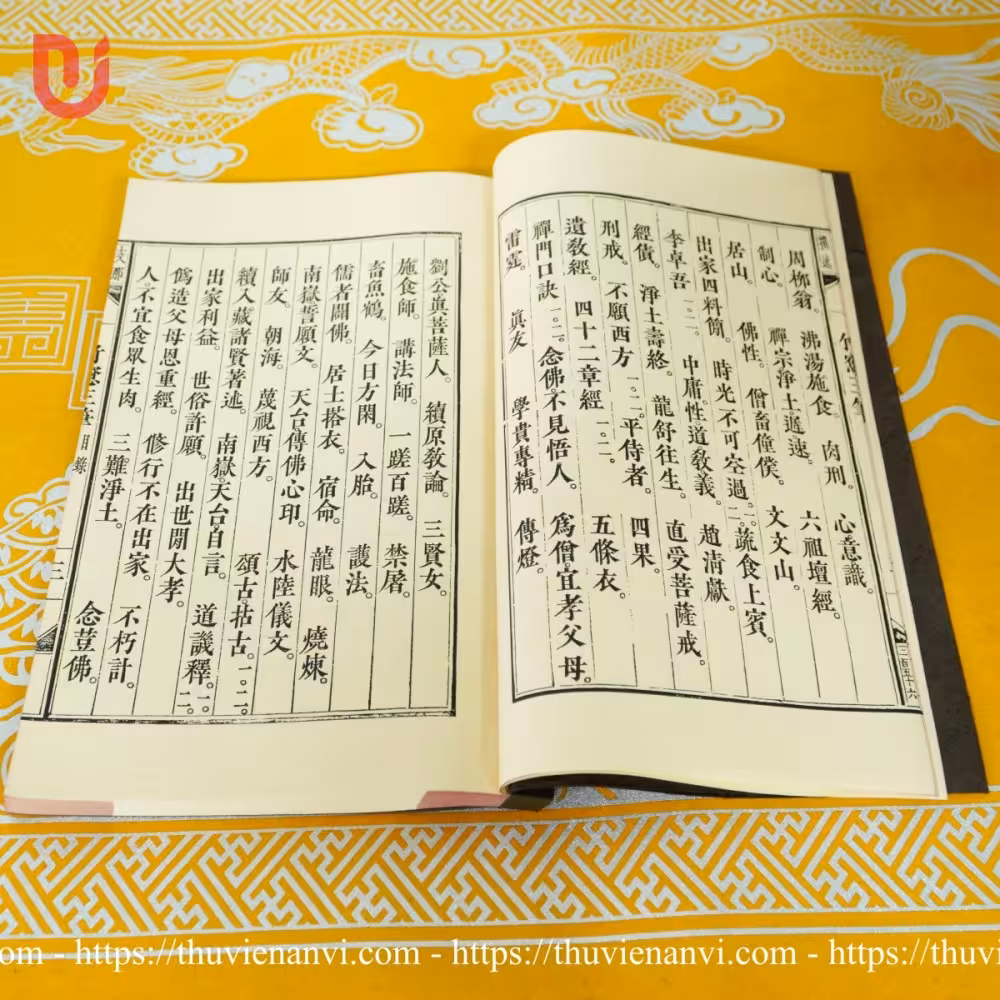 周栁翁。 沸湯施食。 肉刑。 心意識。
制心。 禪宗淨土遲速。 六祖壇經。
居山。 佛性。 僧畜僮僕。 文文山。
出家四料簡。 時光不可空過。一。二。 蔬食上賓。
李卓吾一。二。 中庸。性道敎義。 趙清獻。
經債。 淨土壽終。 龍舒往生。 直受菩薩戒。
刑戒。 不願西方一。二。 平侍者。 四果。
遺敎經。 四十二章經一。二。 五條衣。
禪門口訣一。二。 念佛。不見悟人。 爲僧。宜孝父母。
雷霆。 眞友 學貴專精。 傳燈。
二百五十六
劉公眞菩薩人。 續原敎論。 三賢女。
施食師。 講法師。 一蹉百蹉。 禁屠。
畜魚鶴。 今日方閑。 入胎。 護法。
儒者闢佛。 居士搭衣。 宿命。 龍眼。 燒煉。
南嶽誓願文。 天台。傳佛心印。 水陸儀文。
師友。 朝海。 蔑視西方。 頌古拈古。一。二。
續入藏諸賢著述。 南嶽。天台。自言。 道譏釋。一。二。
出家利益。 世俗許願。 出世閒大孝。
爲造父母恩重經。 修行不在出家。 不朽計。
人。不宜食眾生肉。 三難淨土。 念荳佛。
三筆 目錄
三
https://thuvienanvi.com - https://thuvienanvi.com - https://thuvienanvi.com